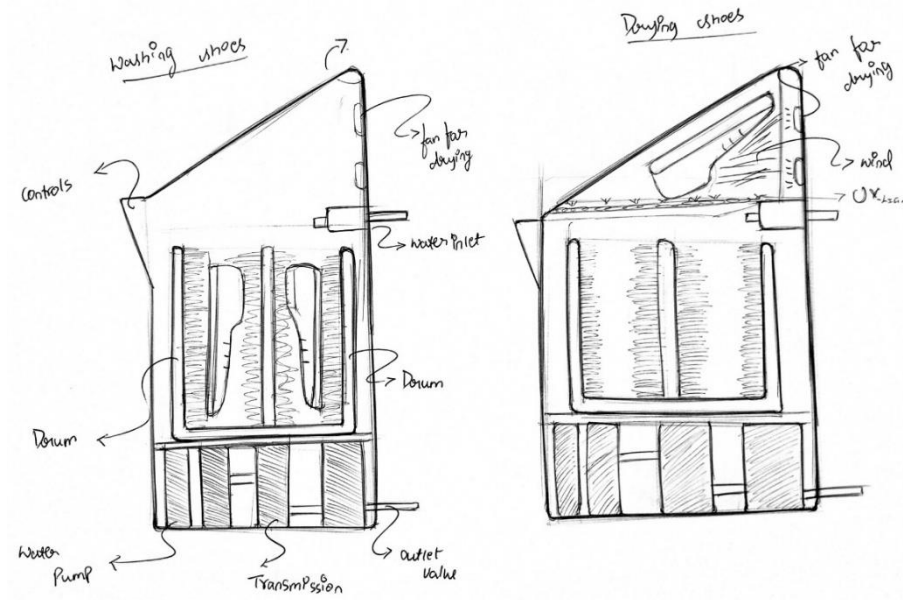 Washing shoes
fan for
drying
controls
water inlet
Drum
Drum
Water
Pump
Transmission
outlet
valve
Drying shoes
fan for
drying
wind